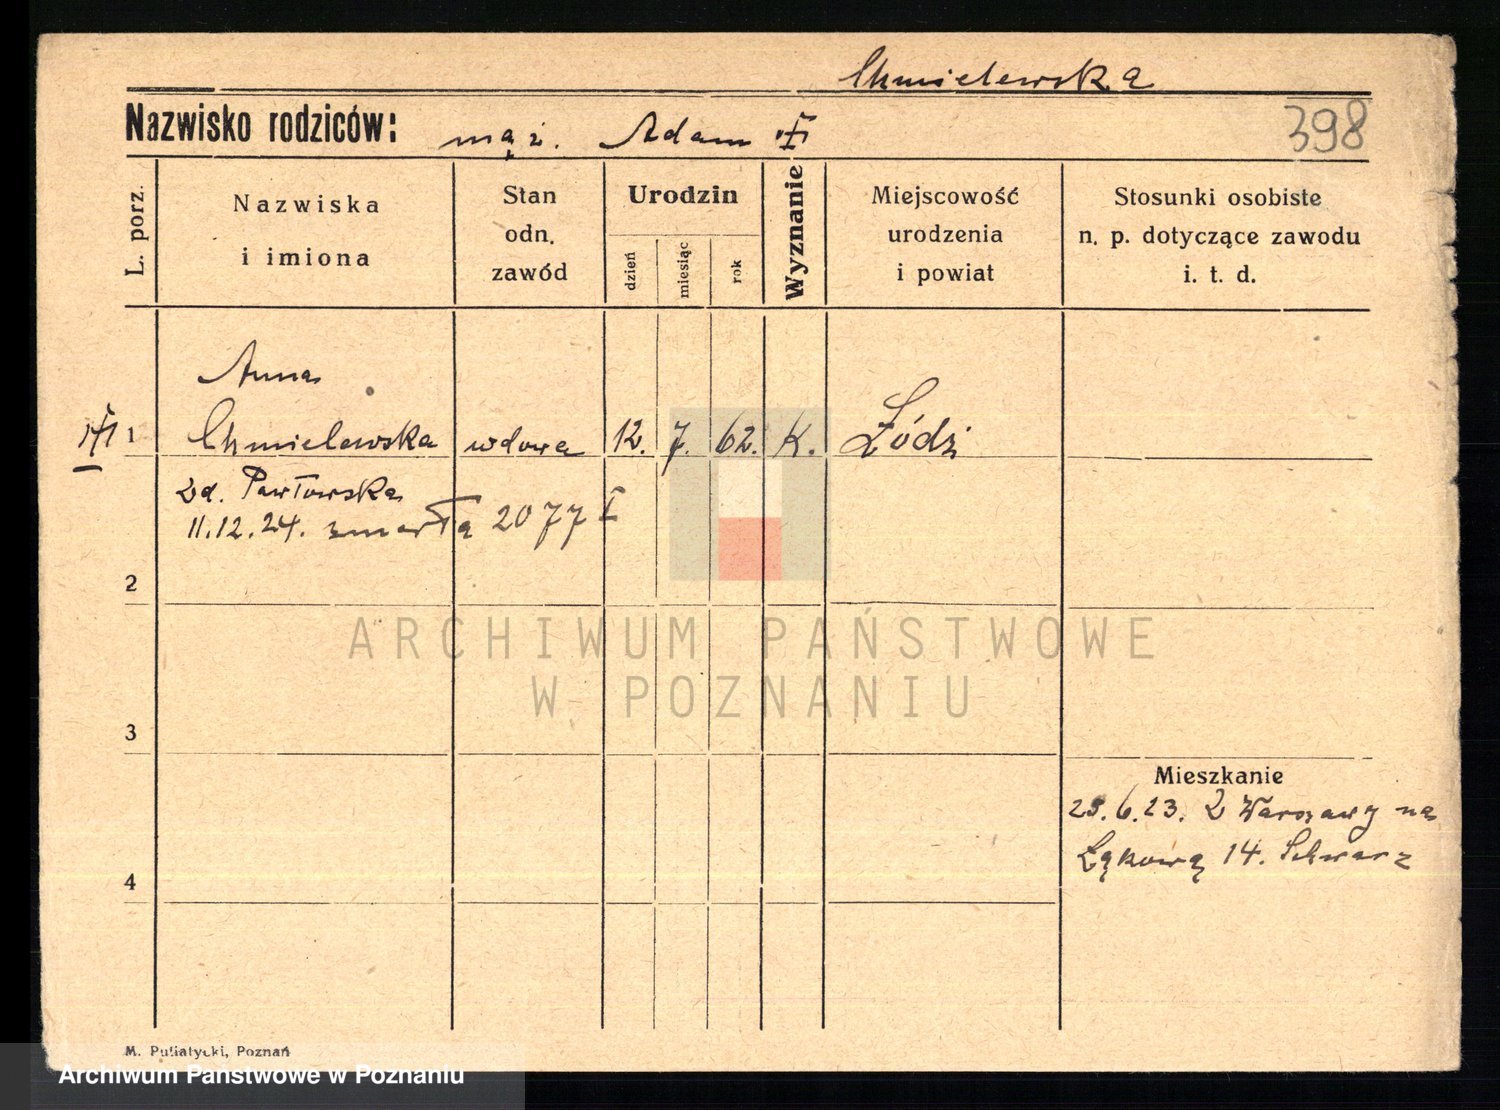 Chmielewska
Nazwisko rodziców: mąż. Adam
398
L. porz.
Nazwiska
i imiona
Stan
odn.
zawód
Urodzin
dzień
miesiąc
rok
Wyznanie
Miejscowość
urodzenia
i powiat
Stosunki osobiste
n. p. dotyczące zawodu
i. t. d.
Anna
1 Chmielewska wdowa 12. 7. 62. K. Łódź
zd. Pawłowska
11.12.24. zmarła 2077 I
2
ARCHIWUM PAŃSTWOWE
W POZNANIU
3
Mieszkanie
23.6.23. Z Warszawy na
Łąkową 14. Schwarz
4
M. Puliatycki, Poznań
Archiwum Państwowe w Poznaniu